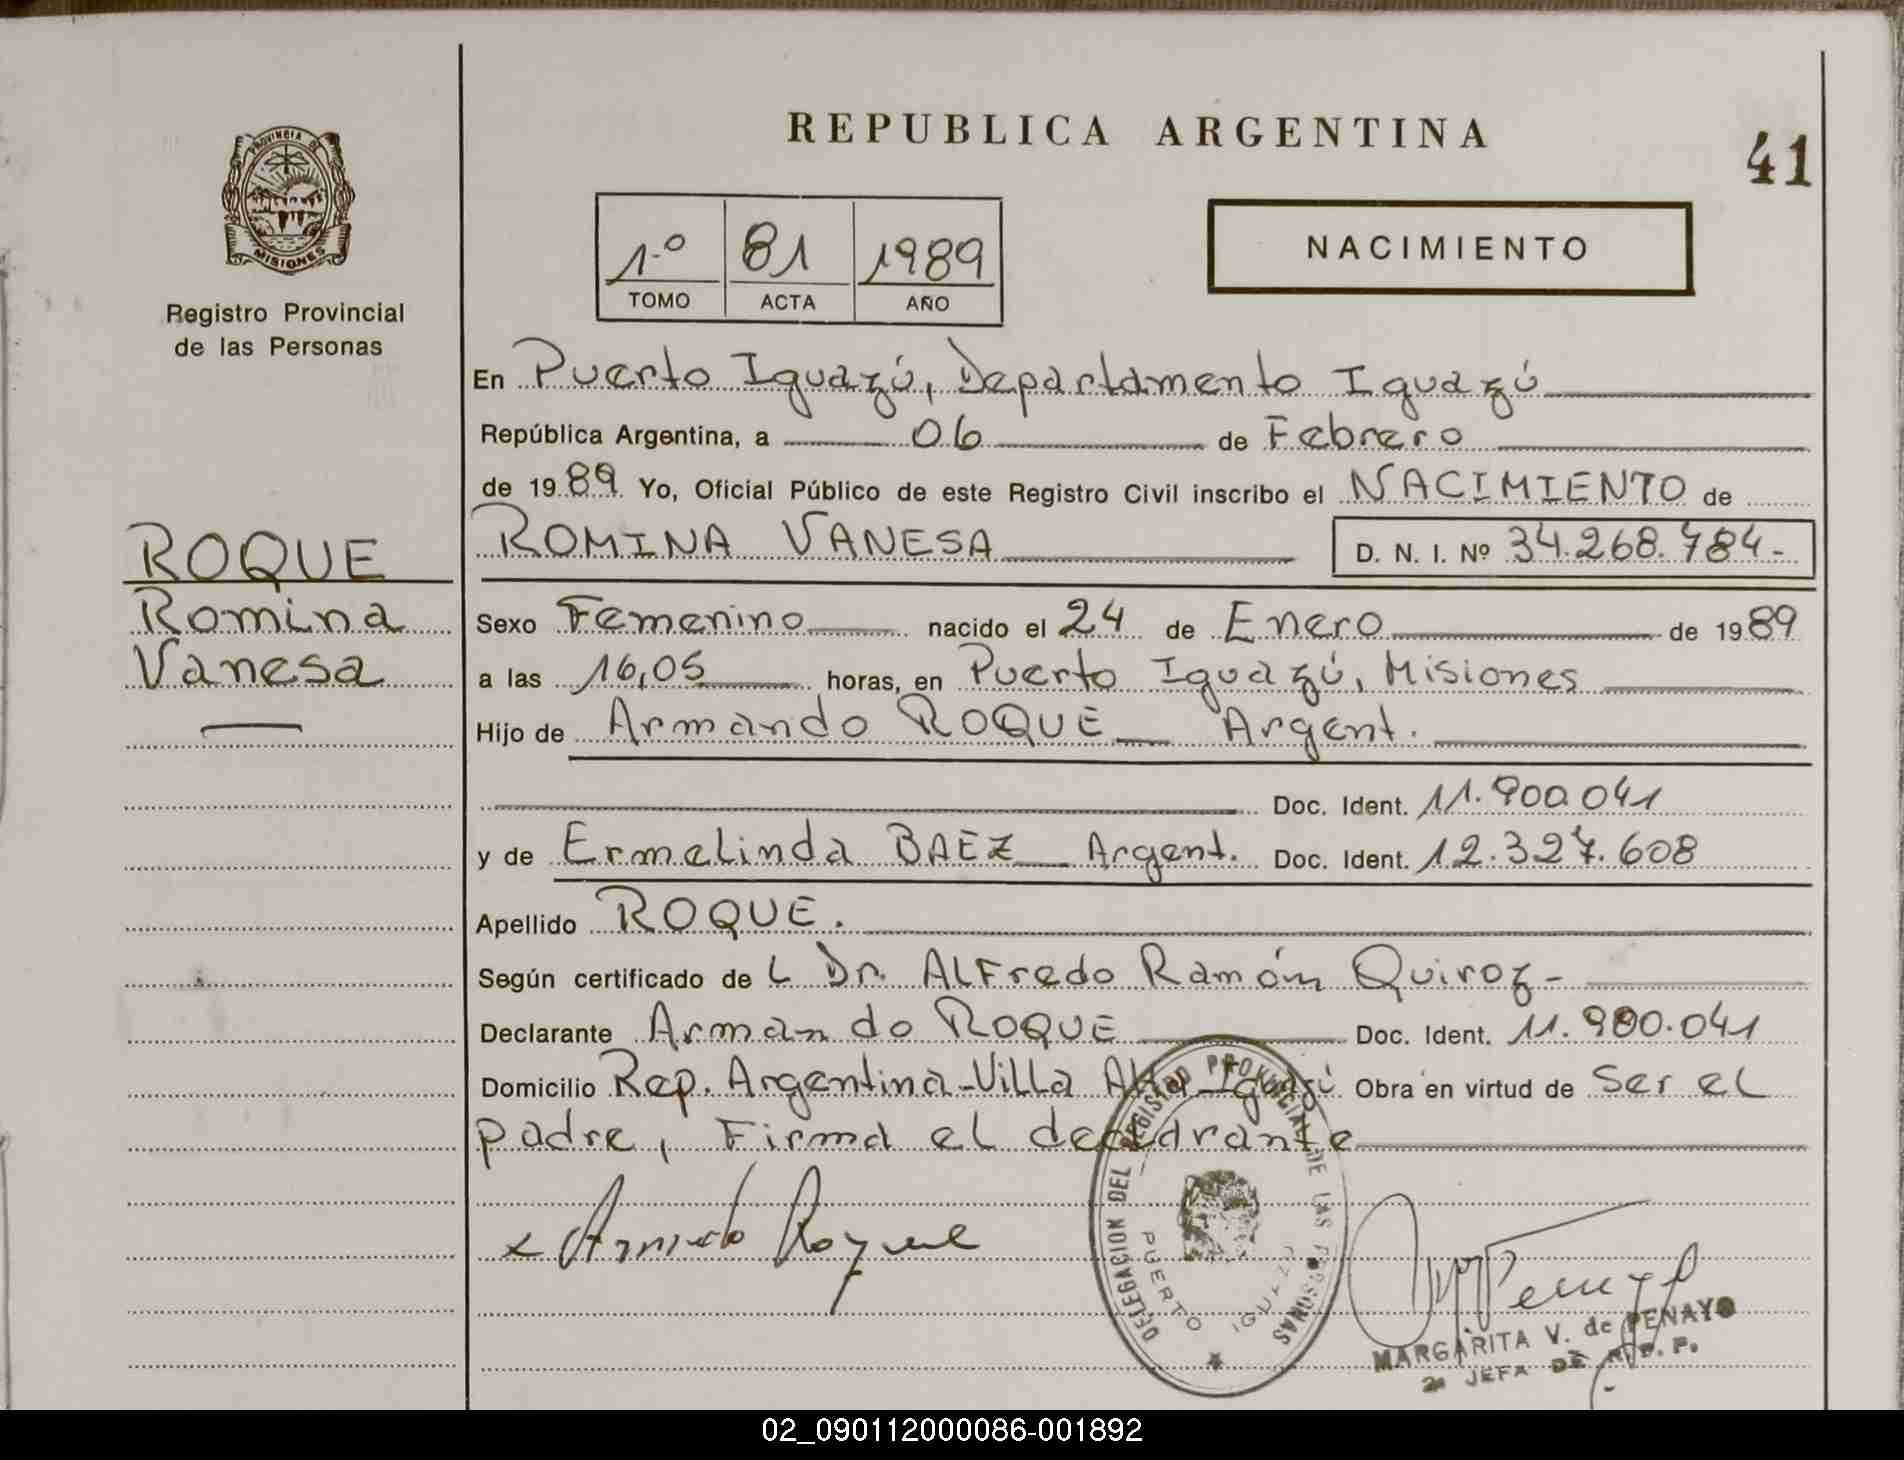 REPUBLICA ARGENTINA
41
PROVINCIA DE
MISIONES
Registro Provincial
de las Personas
1º 81 1989
TOMO ACTA AÑO
NACIMIENTO
En Puerto Iguazú, Departamento Iguazú
República Argentina, a 06 de Febrero
de 1989 Yo, Oficial Público de este Registro Civil inscribo el NACIMIENTO de
ROMINA VANESA D. N. I. Nº 34.268.784.-
ROQUE
Romina
Vanesa
Sexo Femenino nacido el 24 de Enero de 1989
a las 16,05 horas, en Puerto Iguazú, Misiones
Hijo de Armando ROQUE Argent.
Doc. Ident. 11.900.041
y de Ermelinda BAEZ Argent. Doc. Ident. 12.327.608
Apellido ROQUE.
Según certificado de L Dr. ALFredo Ramón Quiroz-
Declarante Armando ROQUE Doc. Ident. 11.900.041
Domicilio Rep. Argentina-Villa Alta Iguazú Obra en virtud de Ser el
padre, Firma el declarante
x Armando Roque
DELEGACION DEL REGISTRO PROVINCIAL DE LAS PERSONAS
PUERTO IGUAZU
MARGARITA V. de PENAYO
2a JEFA DE R. P. P.
02_090112000086-001892